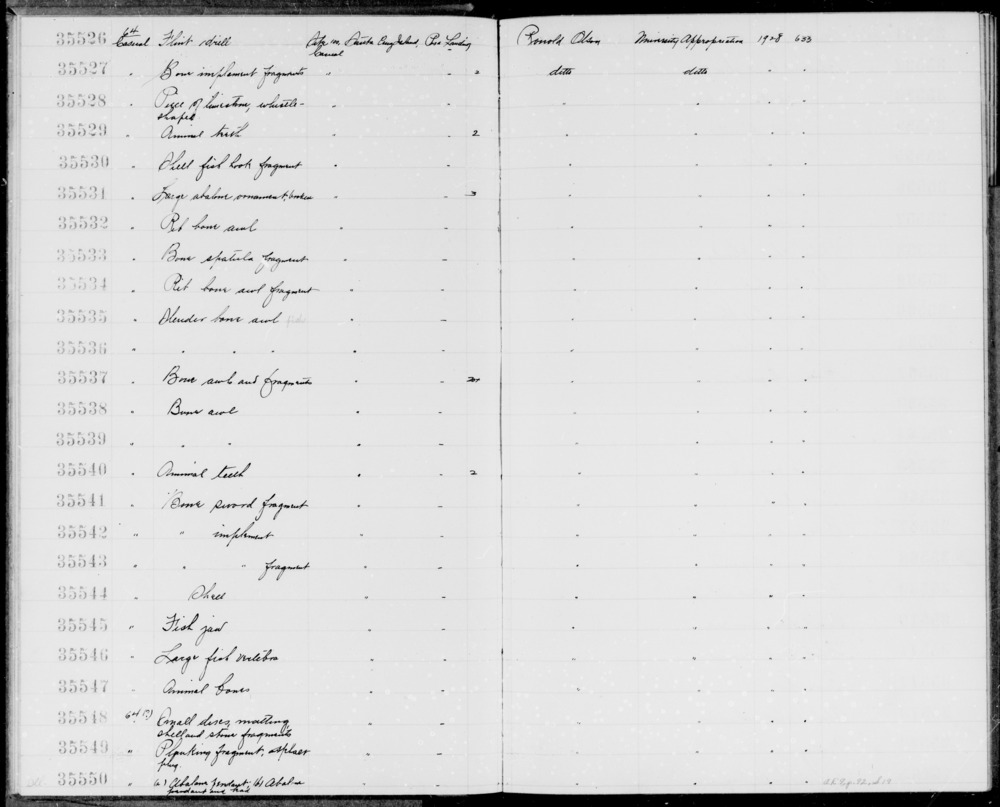 35526 64 Casual Flint drill Site m, Santa Cruz Island, Poso Landing Casual Ronald Olson University Appropriation 1928 633
35527 " Bone implement fragments " - 2 ditto ditto " "
35528 " Piece of limestone, whistle-
shaped " - " " " "
35529 " Animal teeth " - 2 " " " "
35530 " Shell fish hook fragment " - " " " "
35531 " Large abalone ornament, broken " - 3 " " " "
35532 " Rib bone awl " - " " " "
35533 " Bone spatula fragment " - " " " "
35534 " Rib bone awl fragment " - " " " "
35535 " Slender bone awl " - " " " "
35536 " " " " " " - " " " "
35537 " Bone awls and fragments " - " " " "
35538 " Bone awl " - " " " "
35539 " " " " - " " " "
35540 " Animal teeth " - 2 " " " "
35541 " Bone sword fragment " - " " " "
35542 " " implement " - " " " "
35543 " " " fragment " - " " " "
35544 " Shell " - " " " "
35545 " Fish jaw " - " " " "
35546 " Large fish vertebra " - " " " "
35547 " Animal bones " - " " " "
35548 64(?) Small discs, matting,
shell and stone fragments " - " " " "
35549 " Planking fragment, asphalt
plug " - " " " "
35550 " (a) Abalone pendant, (b) Abalone
pendant and bead " - " " " "